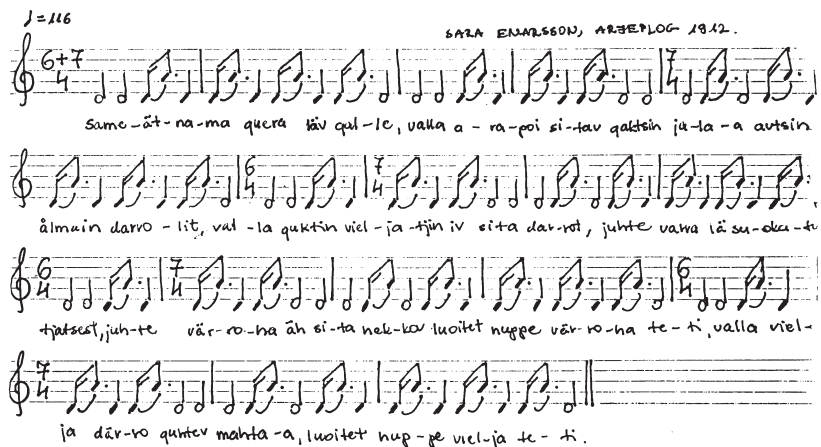 ♩=116
SARA ENARSSON, ARJEPLOG 1912.
6+7
4
7
4
same-ät-na-ma quera läv qul-le, valla a-ra-poi si-tav qaktsin ja-la-a autsin
6
4
7
4
ålmuin darvo-lit, val-la quktin viel-ja-tjin iv sita dar-rot, juhte valla lä su-olu-tu
6
4
7
4
6
4
tjatsest, juh-te vär-ro-ha äh si-ta nek-kov luoitet nuppe vär-ro-ha te-ti, valla viel-
7
4
ja där-ro quhtev mahta-a, luoitet nup-pe viel-ja te-ti.